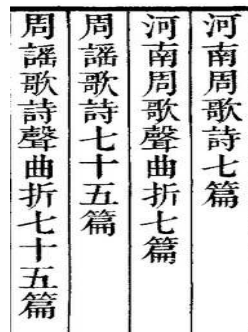 河南周歌詩七篇
河南周歌聲曲折七篇
周謠歌詩七十五篇
周謠歌詩聲曲折七十五篇